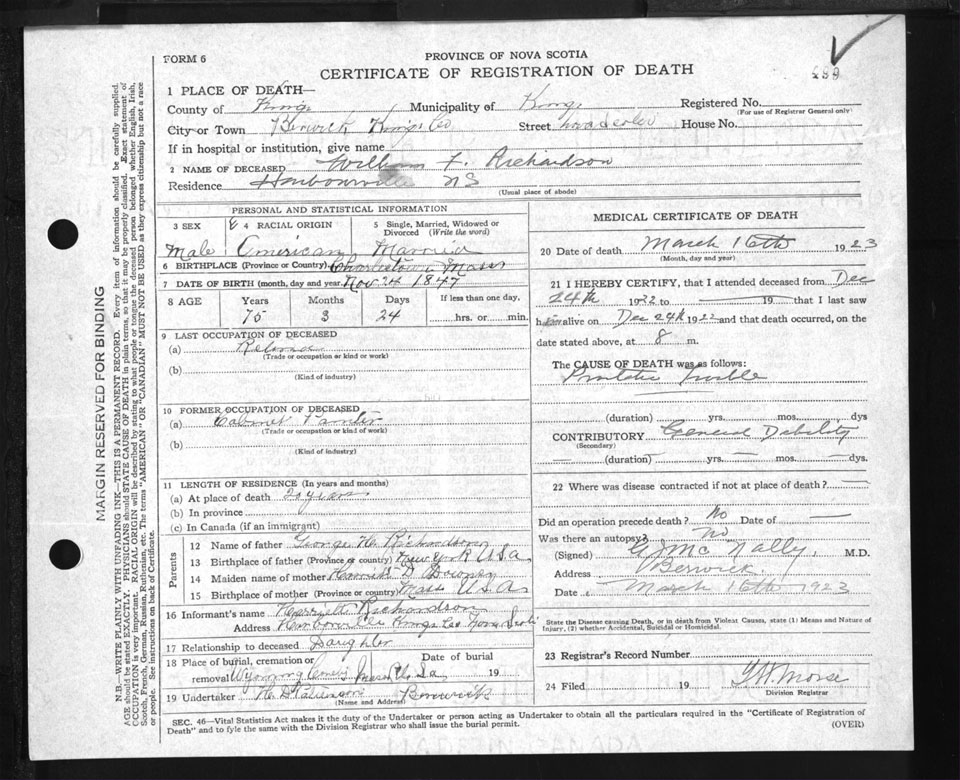 FORM 6
PROVINCE OF NOVA SCOTIA
CERTIFICATE OF REGISTRATION OF DEATH
1 PLACE OF DEATH—
County of Kings Municipality of Kings Registered No.
(For use of Registrar General only)
City or Town Berwick Kings Co Street House No.
If in hospital or institution, give name
2 NAME OF DECEASED William F. Richardson
Residence Harbourville NS
(Usual place of abode)
PERSONAL AND STATISTICAL INFORMATION
3 SEX 4 RACIAL ORIGIN 5 Single, Married, Widowed or Divorced (Write the word)
Male American Married
6 BIRTHPLACE (Province or Country) Charlestown Mass
7 DATE OF BIRTH (month, day and year) Nov 24 1847
8 AGE Years Months Days If less than one day,
75 3 24 hrs. or min.
9 LAST OCCUPATION OF DECEASED
(a) Retired
(Trade or occupation or kind or work)
(b)
(Kind of industry)
10 FORMER OCCUPATION OF DECEASED
(a) Cabinet
(Trade or occupation or kind of work)
(b)
(Kind of industry)
11 LENGTH OF RESIDENCE (In years and months)
(a) At place of death 20 years
(b) In province
(c) In Canada (if an immigrant)
Parents
12 Name of father George H. Richardson
13 Birthplace of father (Province or country) New York U S a
14 Maiden name of mother
15 Birthplace of mother (Province or country) Mass U S A
16 Informant's name Harriett Richardson
Address Harbourville Kings Co Nova Scotia
17 Relationship to deceased Daughter
18 Place of burial, cremation or removal Wyoming Mass Date of burial 19
19 Undertaker Berwick
(Name and Address)
MEDICAL CERTIFICATE OF DEATH
20 Date of death March 16th 1923
(Month, day and year)
21 I HEREBY CERTIFY, that I attended deceased from Dec
24th 1922 to 19 that I last saw
him alive on Dec 24th 1922 and that death occurred, on
date stated above, at 8 m.
The CAUSE OF DEATH was as follows:
Prostatic trouble
(duration) yrs. mos. dys
CONTRIBUTORY General Debility
(Secondary)
(duration) yrs. mos. dys
22 Where was disease contracted if not at place of death?
Did an operation precede death? No Date of
Was there an autopsy? No
(Signed) G J McNally M.D.
Address Berwick
Date March 16th 1923
State the Disease causing Death, or in death from Violent Causes, state (1) Means and Nature of
Injury, (2) whether Accidental, Suicidal or Homicidal.
23 Registrar's Record Number
24 Filed 19 Morse
Division Registrar
SEC. 46—Vital Statistics Act makes it the duty of the Undertaker or person acting as Undertaker to obtain all the particulars required in the "Certificate of Registration of
Death" and to fyle the same with the Division Registrar who shall issue the burial permit.
(OVER)
MARGIN RESERVED FOR BINDING
N.B.—WRITE PLAINLY WITH UNFADING INK—THIS IS A PERMANENT RECORD. Every item of information should be carefully supplied.
AGE should be stated EXACTLY. PHYSICIANS should STATE CAUSE OF DEATH in plain terms, so that it may be properly classified. Exact statement of
OCCUPATION is very important. RACIAL ORIGIN will be described by stating to what people or tongue the deceased person belonged whether English, Irish,
Scotch, French, German, Russian, Ruthenian, etc. The terms "AMERICAN" or "CANADIAN" MUST NOT BE USED as they express citizenship but not a race
or people. See instructions on back of Certificate.